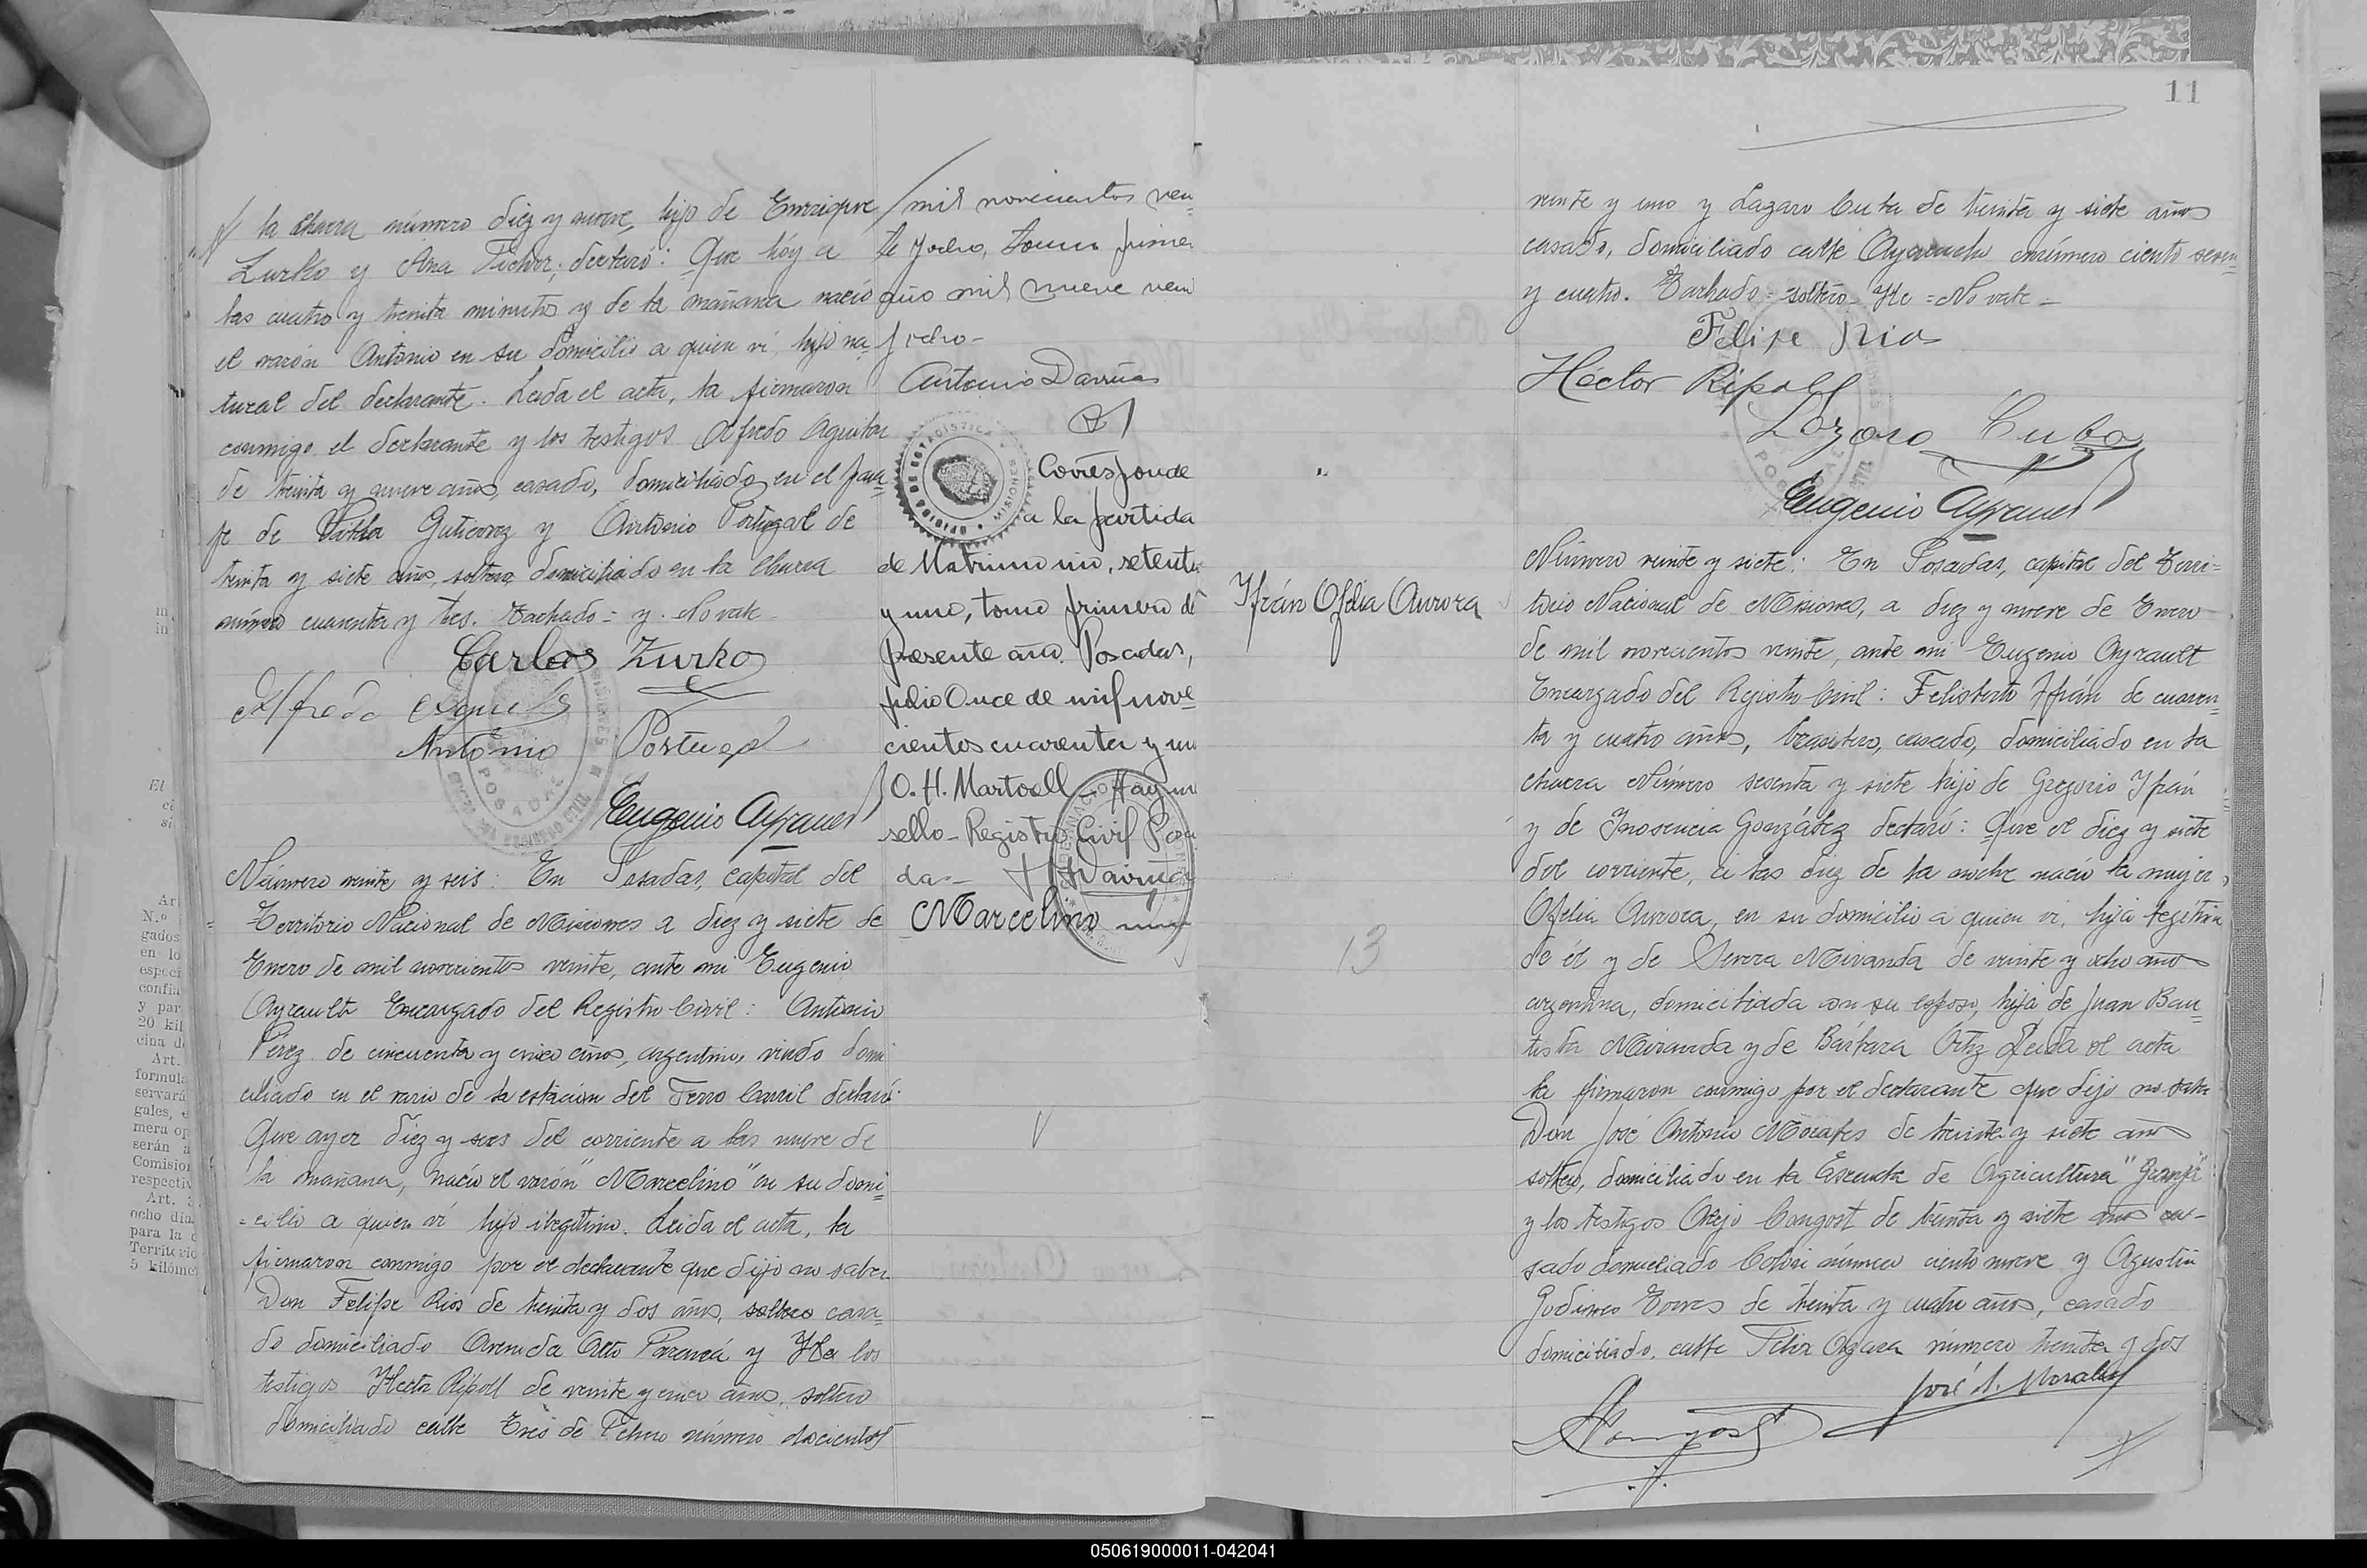 la chacra número diez y nueve, hijo de Enrrique
Zurko y Ana Fucher; declaró: Que hoy a
las cuatro y treinta minutos y de la mañana nació
el varón Antonio en su domicilio a quien ví, hijo na-
tural del declarante. Leida el acta, la firmaron
conmigo el declarante y los testigos Alfredo Aguilar
de treinta y nueve años, casado, domiciliado en el para
je de Villa Gutierrez y Antonio Portugal de
treinta y siete años, soltero domiciliado en la Chacra
número cuarenta y tres. Tachado = y. No vale
Carlos Zurko
Alfredo
Antonio Portugal
Eugenio Ayrault
Número veinte y seis: En Posadas, capital del
Territorio Nacional de Misiones a diez y siete de
Enero de mil novecientos veinte, ante mi Eugenio
Ayrault Encargado del Registro Civil: Antonio
Pérez de cincuenta y cinco años, argentino, viudo domi
ciliado en el vario de la estación del Ferro Carril declaró:
Que ayer diez y seis del corriente a las nueve de
la mañana, nació el varón "Marcelino" en su domi-
=cilio a quien ví hijo ilegitimo. Leida el acta, la
firmaron conmigo por el declarante que dijo no saber
Don Felipe Rios de treinta y dos años, soltero casa-
do domiciliado Avenida Alto Paraná y los
testigos Hector Ripoll de veinte y cinco años, soltero
domiciliado calle Tres de Febrero número docientos
mil novecientos vein
te y ocho, tomo primer
año mil nueve vein
y ocho-
Antonio Darruas
Corresponde
a la partida
de Matrimonio, setenta
y uno, tomo primero del
presente año. Posadas,
julio Once de mil nove
cientos cuarenta y un
O. H. Martoell - Hay un
sello - Registro Civil Posa
das -
Marcelino
11
veinte y uno y Lazaro Cuba de treinta y siete años
casado, domiciliado calle Ayacucho número ciento sesen
y cuatro. Tachado = soltero - = No vale -
Felipe Rios
Héctor Ripoll
Lazaro Cuba
Eugenio Ayrault
Ifrán Ofelia Aurora
13
Número veinte y siete: En Posadas, capital del Terri=
torio Nacional de Misiones, a diez y nueve de Enero
de mil novecientos veinte, ante mi Eugenio Ayrault
Encargado del Registro Civil: Felisberto Ifrán de cuaren
ta y cuatro años, brasilero, casado, domiciliado en la
chacra Número sesenta y siete hijo de Gregorio Ifrán
y de Inosencia González declaró: Que el diez y siete
del corriente, a las diez de la noche nació la mujer
Ofelia Aurora, en su domicilio a quien ví, hija legitima
de él y de Severa Miranda de veinte y ocho años
argentina, domiciliada con su esposo, hija de Juan Bau
tista Miranda y de Bárbara Ortiz Leida el acta
la firmaron conmigo por el declarante que dijo no saber
Don José Antonio Morales de treinta y siete años
soltero, domiciliado en la Escuela de Agricultura "Granja"
y los testigos Alejo Congost de treinta y siete años ca-
sado domiciliado Colón número ciento nueve y Agustin
Godines Torres de treinta y cuatro años, casado
domiciliado. calle Felix Azara número treinta y dos
José A. Morales
050619000011-042041